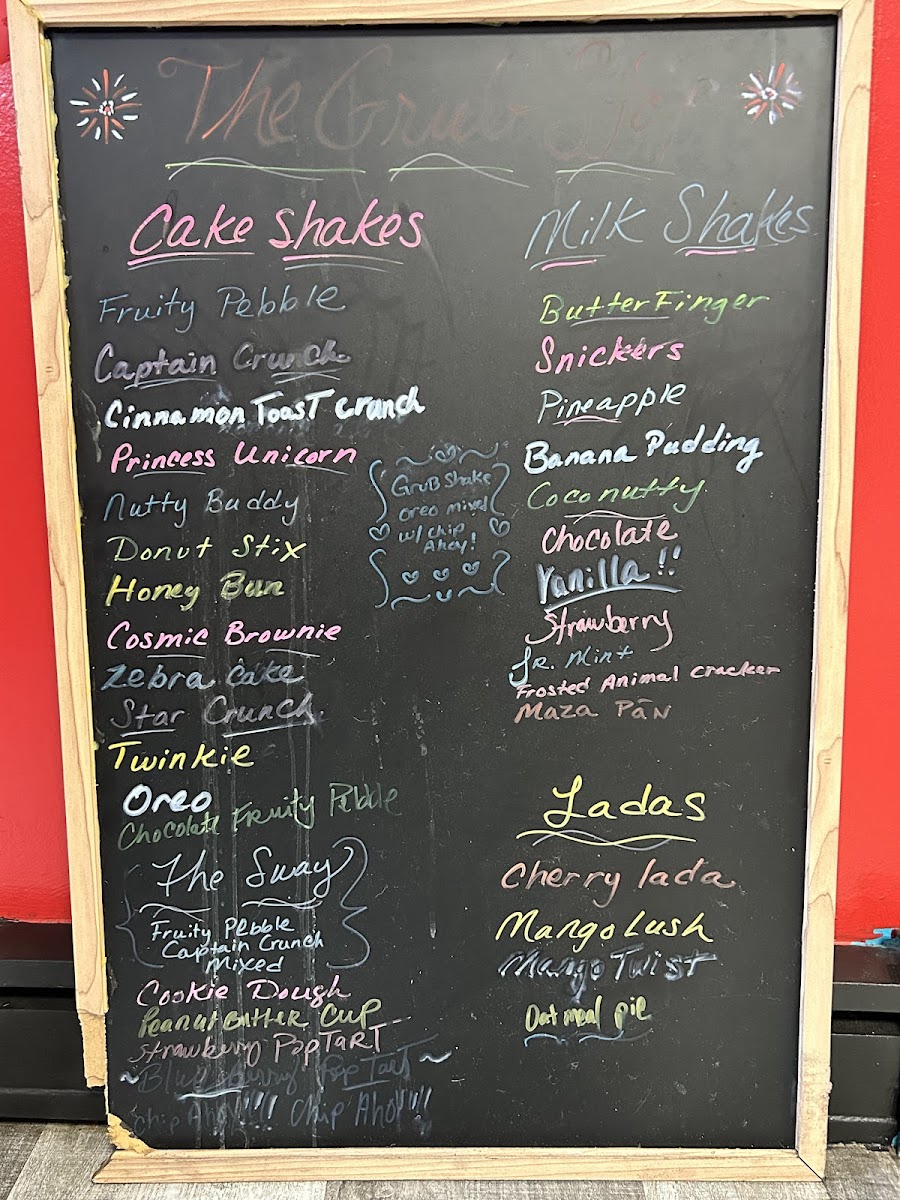 The Grub Stop
Cake Shakes
Fruity Pebble
Captain Crunch
Cinnamon Toast Crunch
Princess Unicorn
Nutty Buddy
Donut Stix
Honey Bun
Cosmic Brownie
Zebra Cake
Star Crunch
Twinkie
Oreo
Chocolate Fruity Pebble
The Sway
Fruity Pebble
Captain Crunch
Mixed
Cookie Dough
Peanut Butter Cup
Strawberry PopTart
~Blueberry PopTart~
Chip Ahoy!!!! Chip Ahoy!!!!
Grub Shake
Oreo mixed
w/ Chip
Ahoy!
Milk Shakes
ButterFinger
Snickers
Pineapple
Banana Pudding
Coconutty
Chocolate
Vanilla!!
Strawberry
Jr. Mint
Frosted Animal Cracker
Maza Pān
Ladas
Cherry lada
Mango Lush
Mango Twist
Oatmeal pie